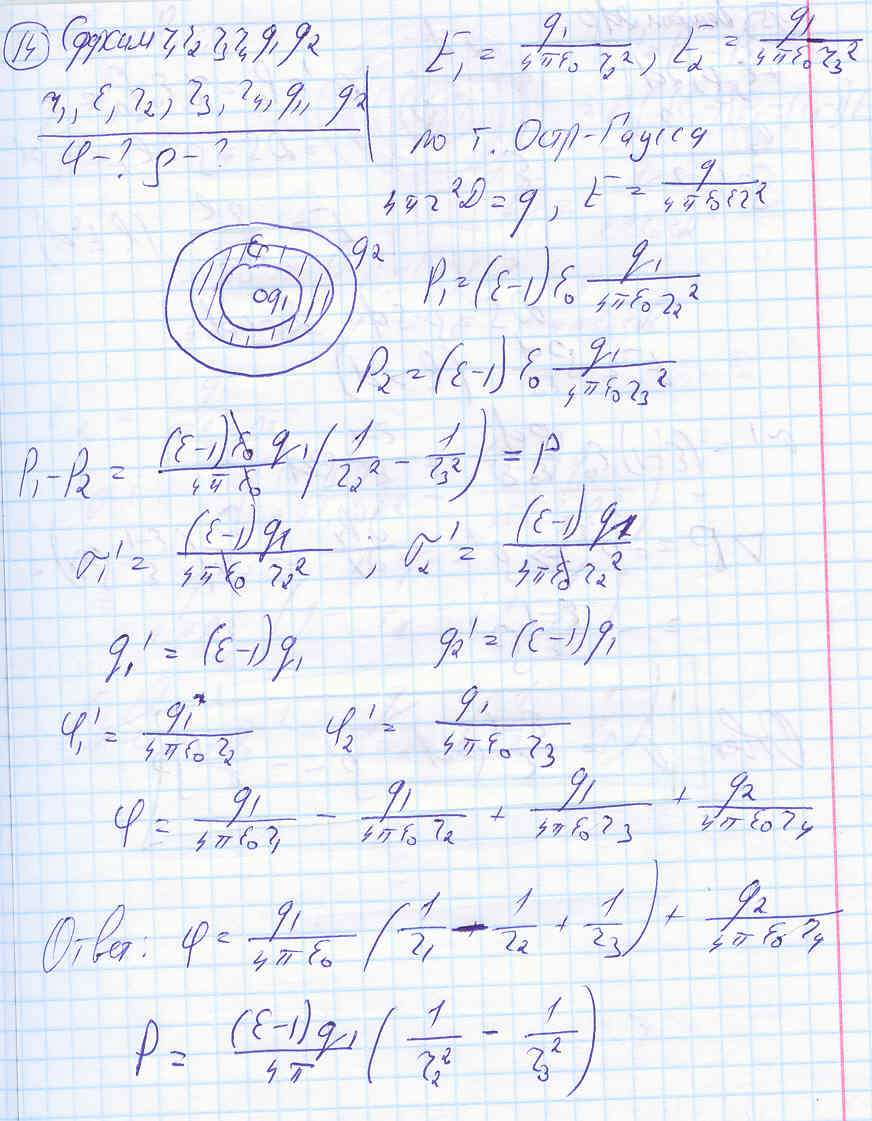 14 Сджим r₁ r₂ r₃ r₄ q₁ q₂
r₁, ε, r₂, r₃, r₄, q₁, q₂
φ-? ρ-?
E₁ = q₁/(4πε₀ r₂²), E₂ = q₁/(4πε₀ r₃²)
по т. Остр-Гаусса
4πr²D = q, E = q/(4πε₀εr²)
ε q₂
q₁
P₁ = (ε-1) ε₀ q₁/(4πε₀ r₂²)
P₂ = (ε-1) ε₀ q₁/(4πε₀ r₃²)
P₁-P₂ = (ε-1)ε₀ q₁/(4π ε₀) (1/r₂² - 1/r₃²) = P
σ₁' = (ε-1) q₁/(4πε₀ r₂²); σ₂' = (ε-1) q₁/(4πε₀ r₂²)
q₁' = (ε-1) q₁ q₂' = (ε-1) q₁
φ₁' = q₁/(4πε₀ r₂) φ₂' = q₁/(4πε₀ r₃)
φ = q₁/(4πε₀ r₁) - q₁/(4πε₀ r₂) + q₁/(4πε₀ r₃) + q₂/(4πε₀ r₄)
Ответ: φ = q₁/(4πε₀) (1/r₁ - 1/r₂ + 1/r₃) + q₂/(4πε₀ r₄)
P = (ε-1) q₁/(4π) (1/r₂² - 1/r₃²)